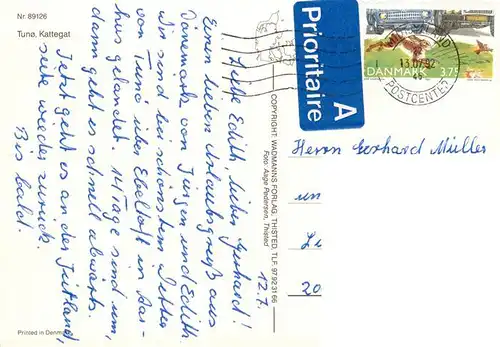 Nr 89126
Tunø, Kattegat
12.7.
Liebe Edith, lieber Gerhard!
Einen lieben Urlaubsgruß aus
Dänemark von Jürgen und Edith.
Wir sind bei schönstem Wetter
von Tunö über Ebeltoft in Aar-
hus gelandet. 14 Tage sind um,
dann geht es schnell abwärts.
Jetzt geht es an der Jütland,
seite wieder zurück.
Bis bald.
Printed in Denm
COPYRIGHT: WADMANNS FORLAG, THISTED. TLF. 97 92 31 66
Foto: Aage Pedersen, Thisted
Prioritaire
A
13.07.92
POSTCENTER
DANMARK 3.75
Herrn Gerhard Müller
un
Le
20